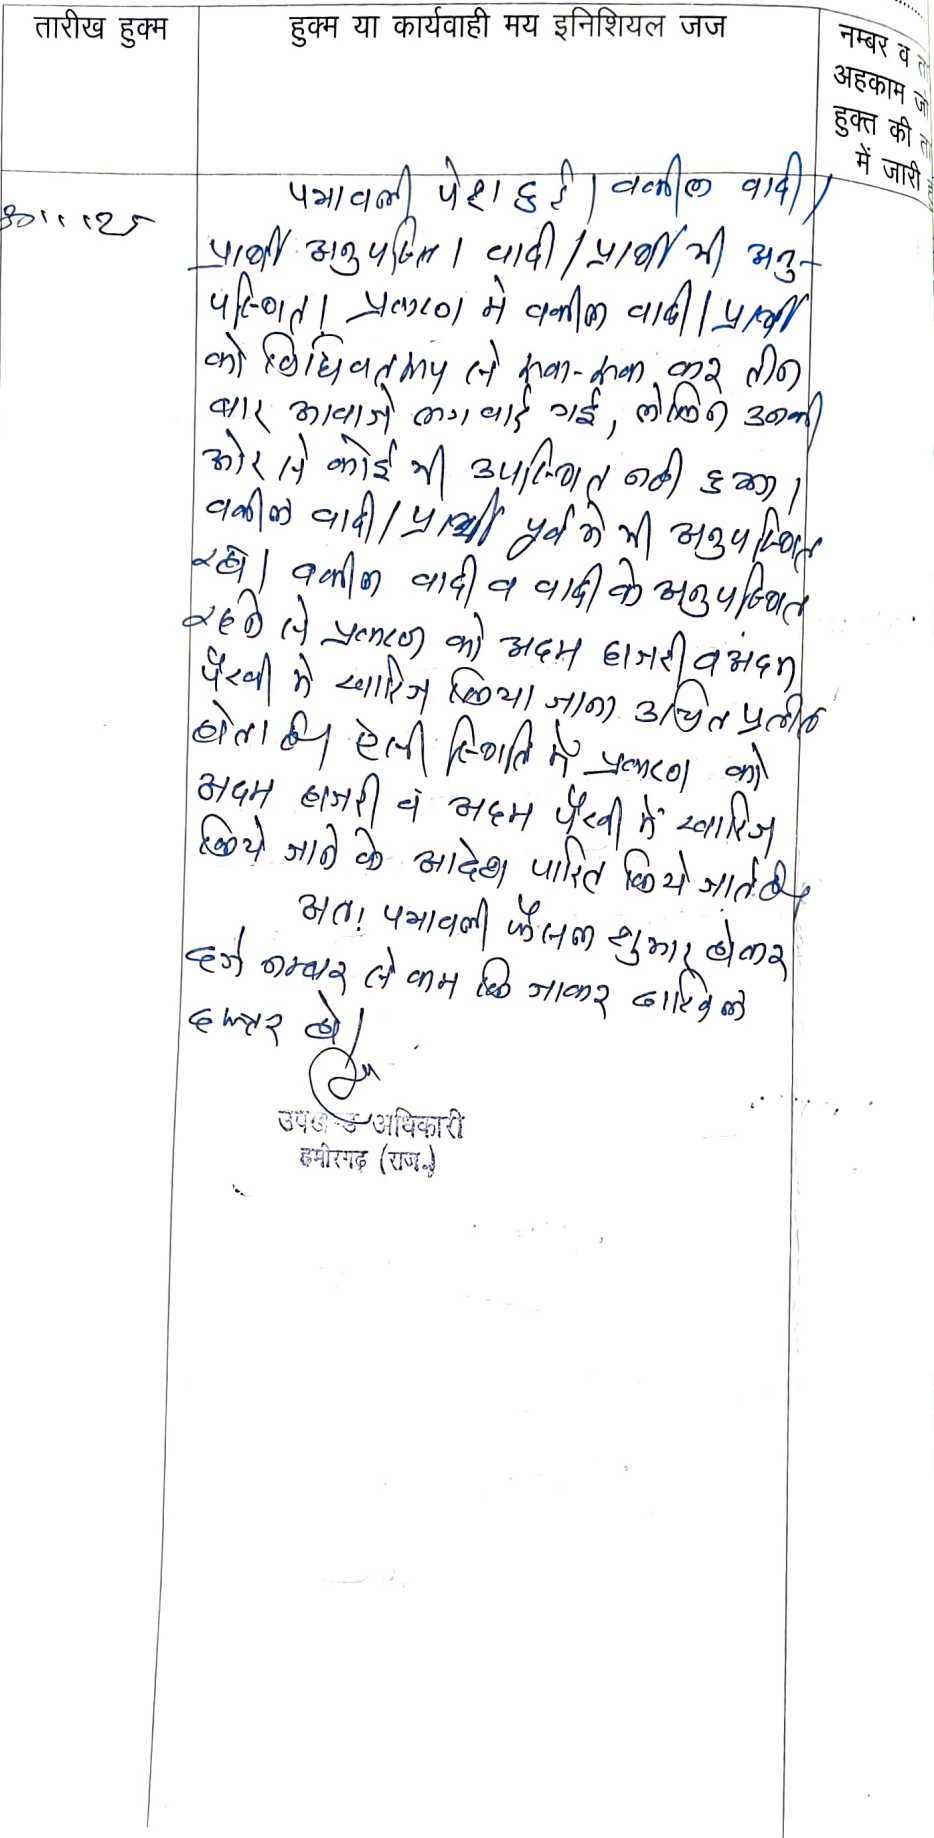 तारीख हुक्म
हुक्म या कार्यवाही मय इनिशियल जज
नम्बर व
अहकाम
हुक्त की
में जारी
पत्रावली पेश हुई। वकील वादी/
प्रार्थी अनुपस्थित। वादी/प्रार्थी भी अनु-
पस्थित। प्रकरण में वकील वादी/प्रार्थी
को विधिवत रूप से रूक-रूक कर तीन
बार आवाजे लगवाई गई, लेकिन उनकी
ओर से कोई भी उपस्थित नही हुआ।
वकील वादी/प्रार्थी पूर्व में भी अनुपस्थित
रहे। वकील वादी व वादी के अनुपस्थित
रहने से प्रकरण को अदम हाजरी व अदम
पैरवी में खारिज किया जाना उचित प्रतीत
होता है। ऐसी स्थिति में प्रकरण को
अदम हाजरी व अदम पैरवी में खारिज
किये जाने के आदेश पारित किये जाते है।
अतः पत्रावली फैसल शुमार होकर
दर्ज नम्बर से कम कि जाकर दाखिल
दफ्तर हो।
उपखण्ड अधिकारी
हमीरगढ़ (राज.)